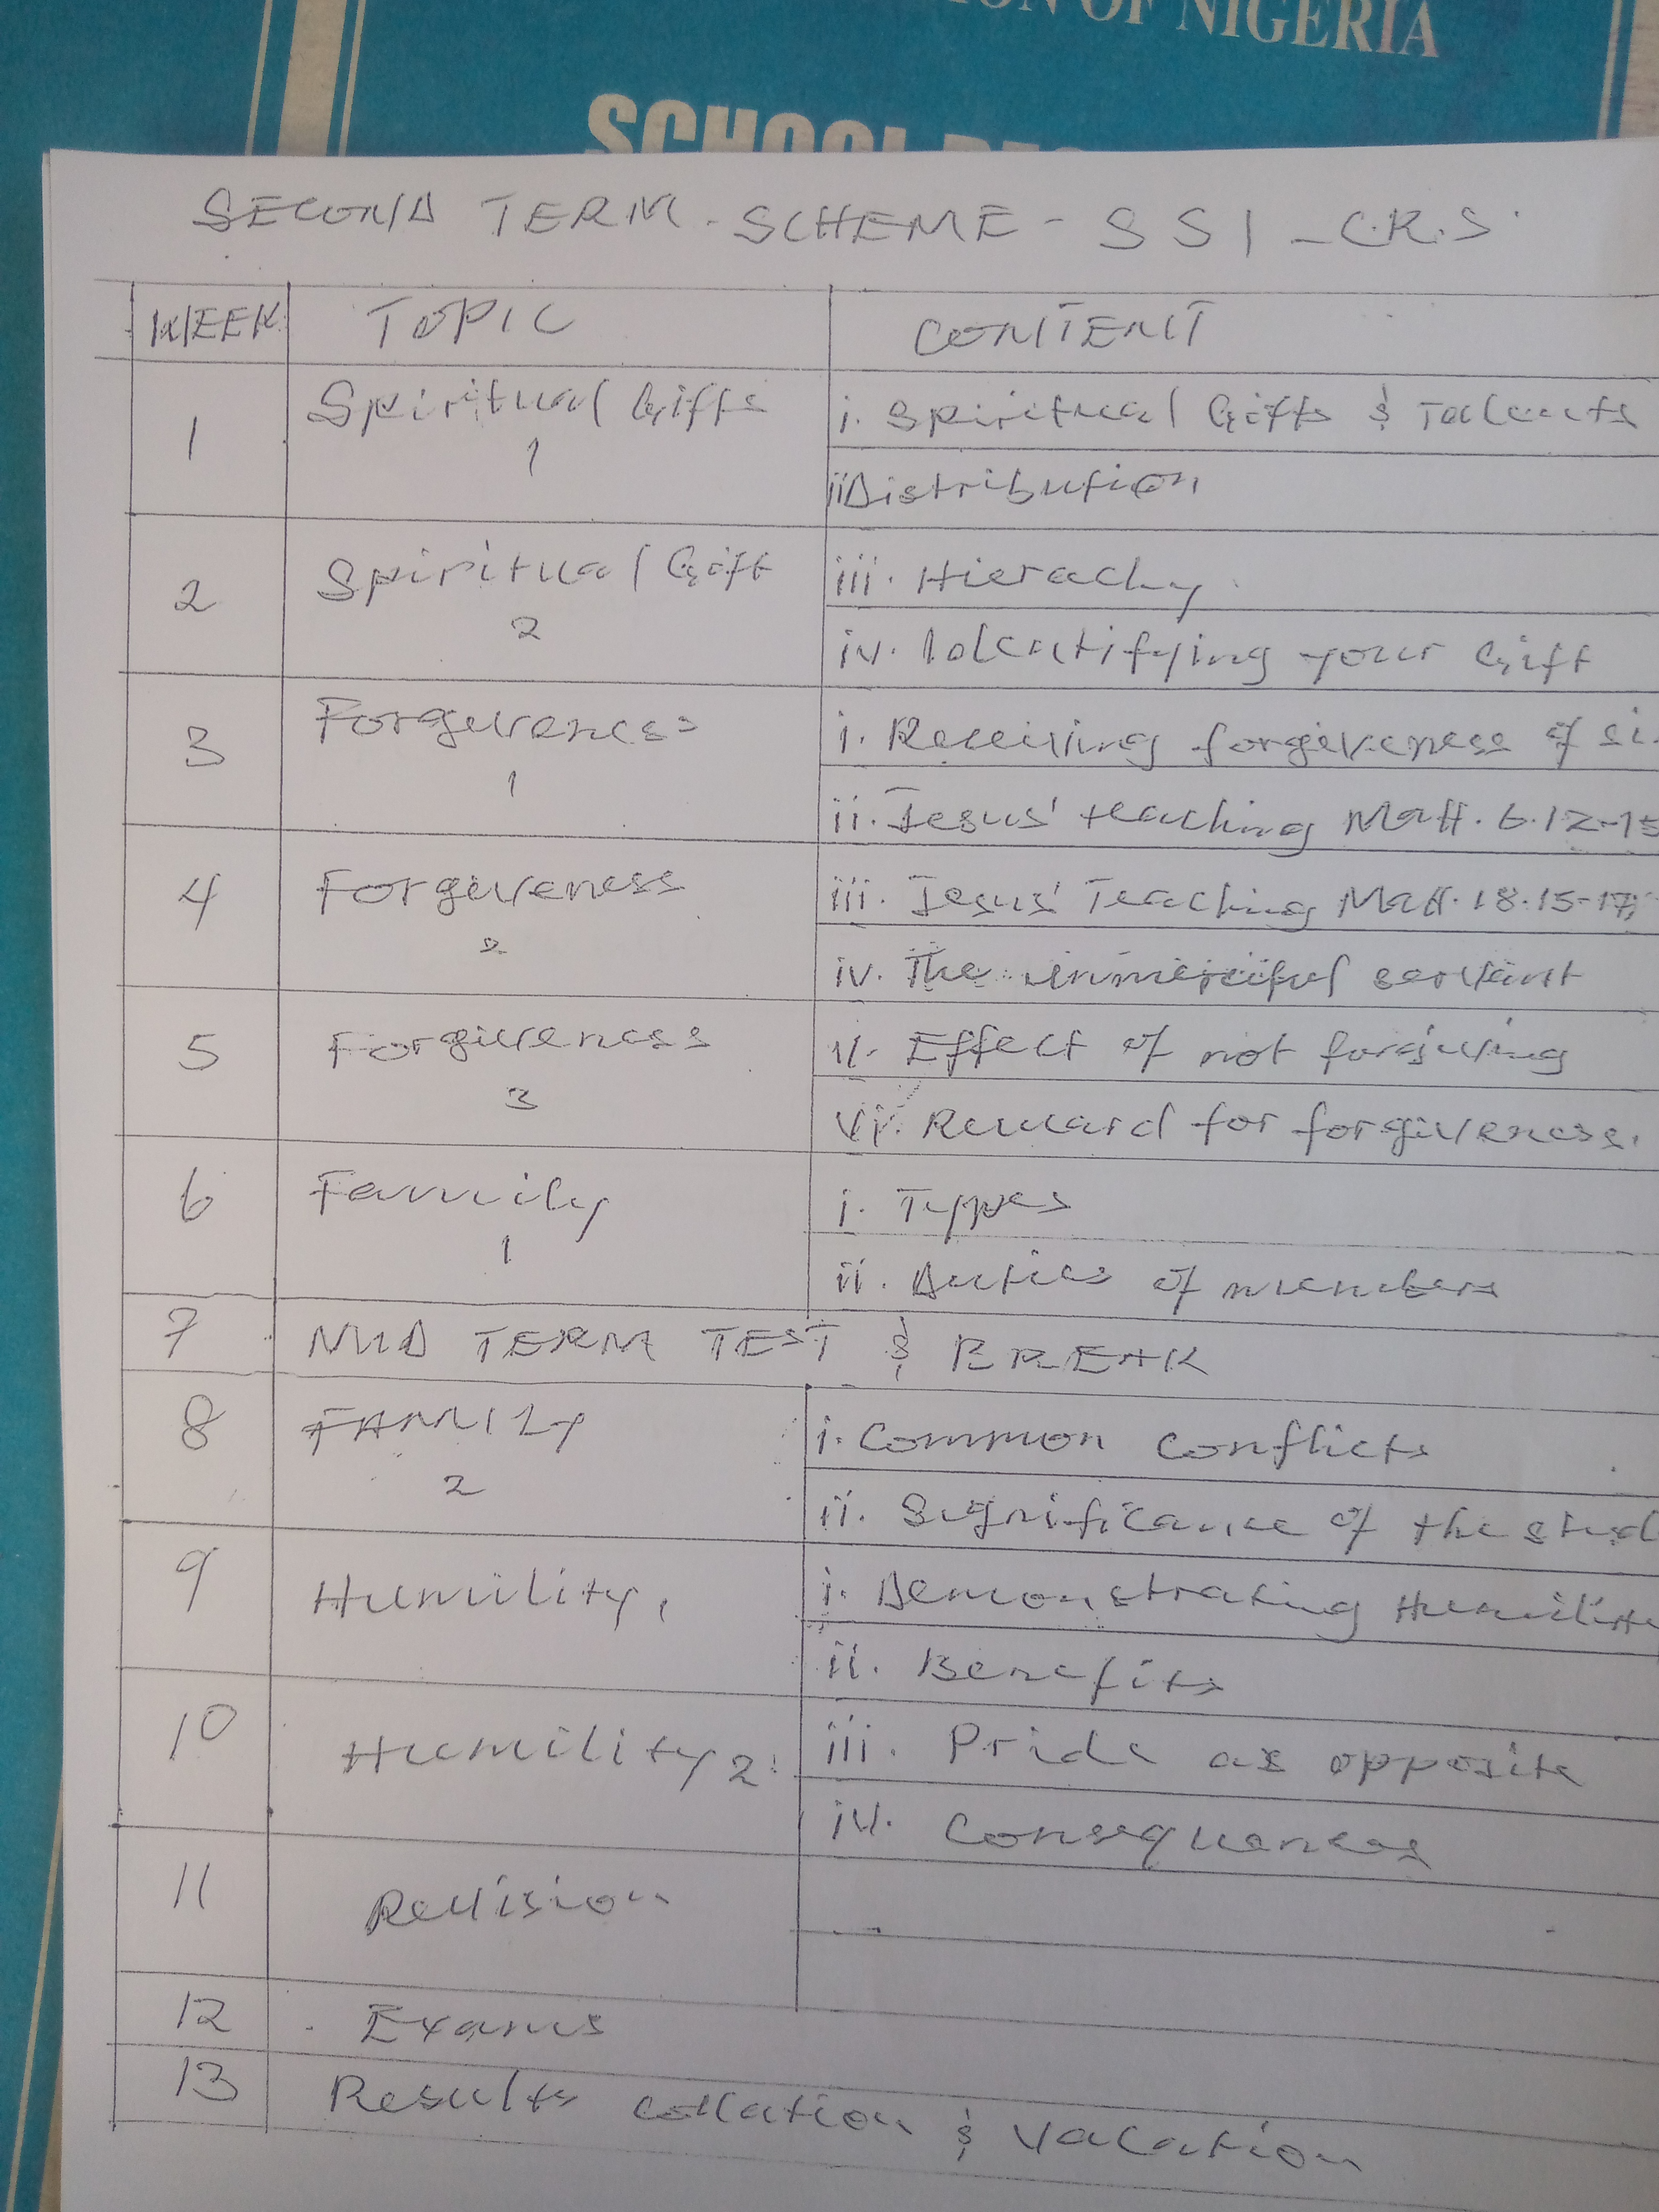 OF NIGERIA
SCHOOL
SECOND TERM - SCHEME - SS1 - C.R.S
WEEK TOPIC CONTENT
1 Spiritual Gifts 1
i. Spiritual Gifts & Talents
ii Distribution
2 Spiritual Gift 2
iii. Hierachy
iv. Identifying your Gift
3 Forgiveness 1
i. Receiving forgiveness of
ii. Jesus' teaching Matt. 6.12-15
4 Forgiveness 2
iii. Jesus' Teaching Matt. 18.15-17,
iv. The unmerciful servant
5 Forgiveness 3
v. Effect of not forgiving
vi. Reward for forgiveness.
6 Family 1
i. Types
ii. Duties of members
7 MID TERM TEST & BREAK
8 FAMILY 2
i. Common conflicts
ii. Significance of the
9 Humility 1
i. Demonstrating Humility
ii. Benefits
10 Humility 2
iii. Pride as opposite
iv. Consequences
11 Revision
12 Exams
13 Results collation & Vacation